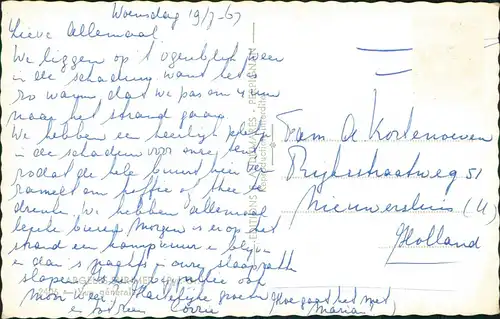 Woensdag 19/7-67
Lieve Allemaal
We liggen op 't ogenblijk weer
in de schaduw want het is
zo warm dat we pas om 4 uur
naar het strand gaan
We hebben een heerlijk plekje
in de schaduw voor onze tent
zodat de hele buurt hier ver
zamelt om koffie of thee te
drinken. We hebben allemaal
leuke buren. Morgen is er op het
strand een kampvuur en blijven
e dan 's nachts in onze slaapzak
slapen
mon weer. Hartelijke groeten
Corrie
Hoe gaat het met
Marian
Fam de Kortenoeven
Rijksstraatweg 51
Nieuwersluis (U)
Holland